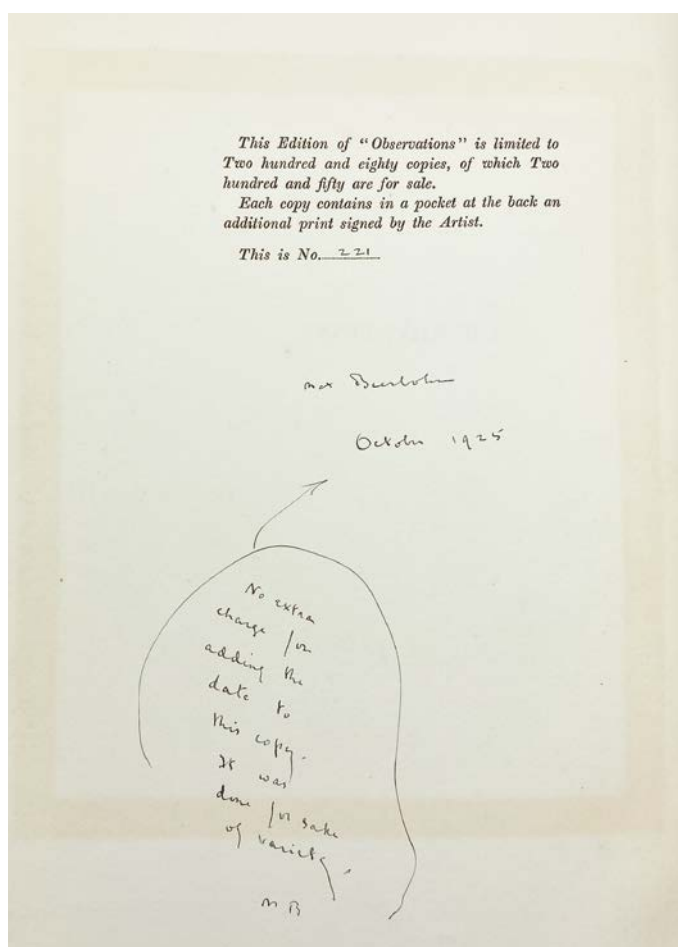 This Edition of "Observations" is limited to
Two hundred and eighty copies, of which Two
hundred and fifty are for sale.
Each copy contains in a pocket at the back an
additional print signed by the Artist.
This is No. 221
Max Beerbohm
October 1925
No extra
charge for
adding the
date to
this copy.
It was
done for sake
of variety.
MB